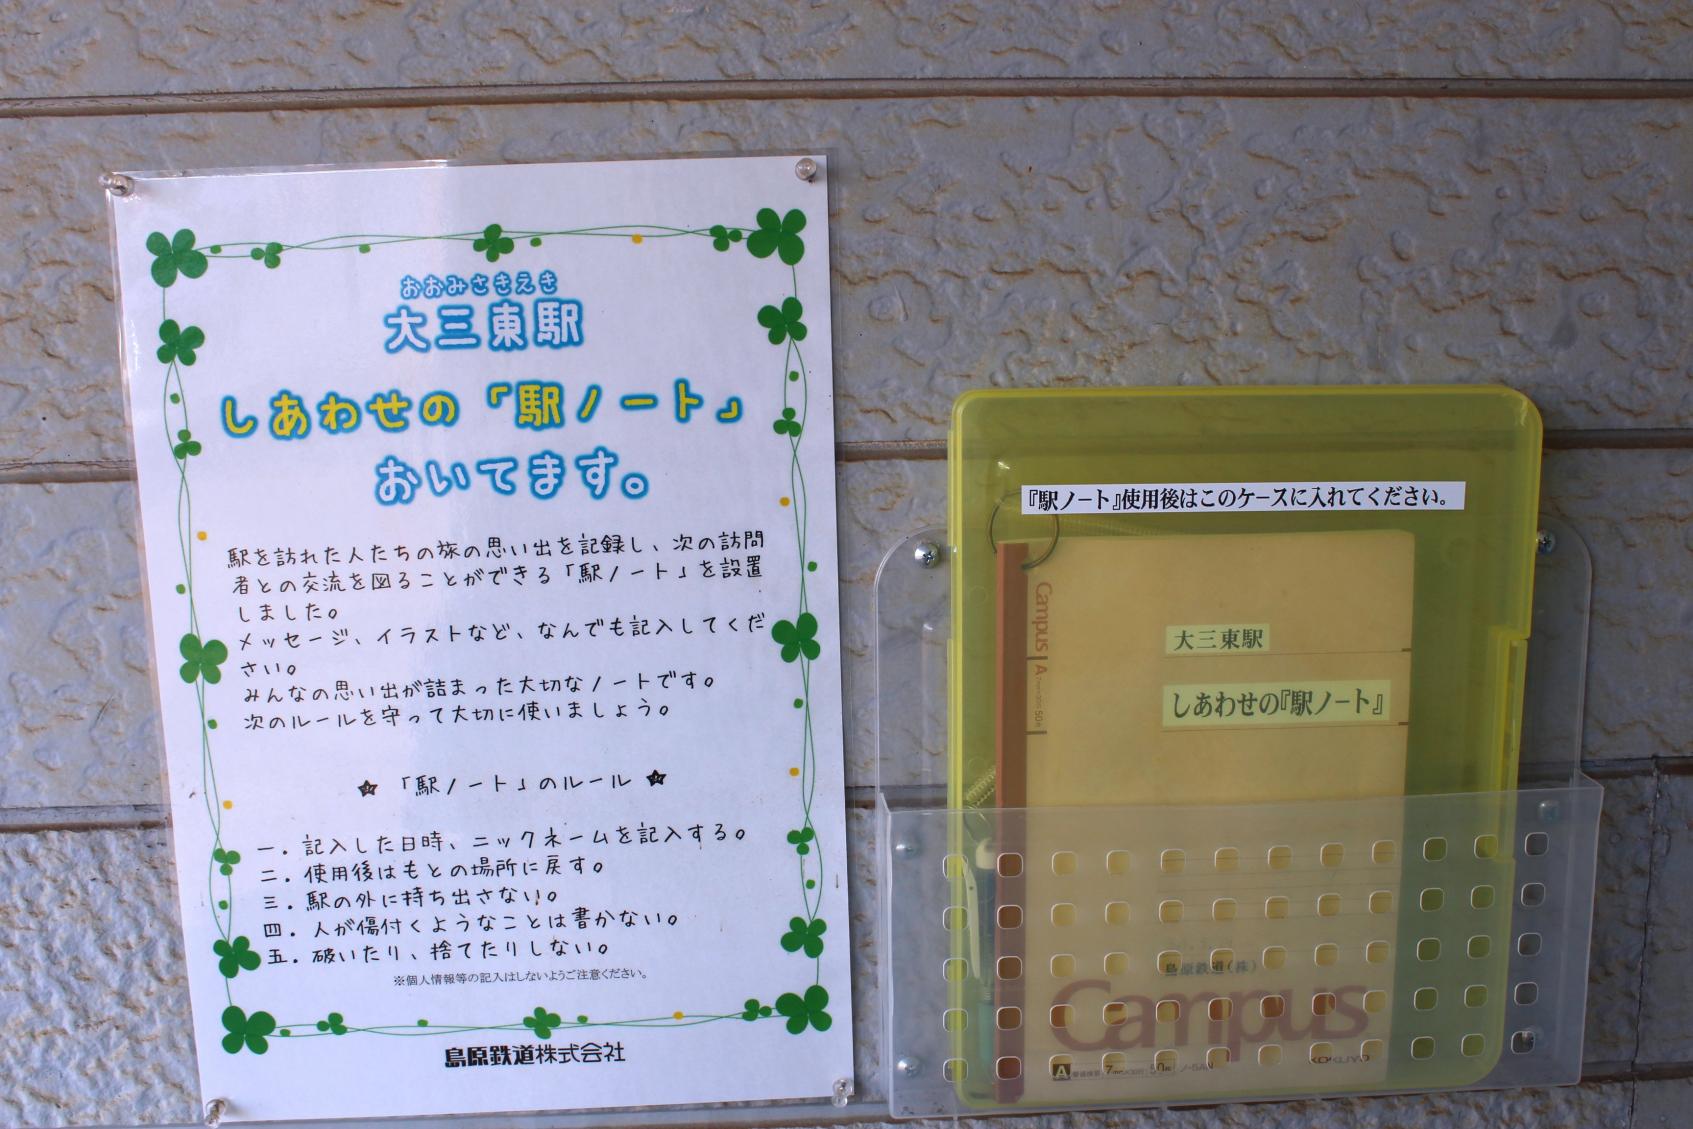 おおみさきえき
大三東駅
しあわせの「駅ノート」
おいてます。
駅を訪れた人たちの旅の思い出を記録し、次の訪問
者との交流を図ることができる「駅ノート」を設置
しました。
メッセージ、イラストなど、なんでも記入してくだ
さい。
みんなの思い出が詰まった大切なノートです。
次のルールを守って大切に使いましょう。
「駅ノート」のルール
一．記入した日時、ニックネームを記入する。
二．使用後はもとの場所に戻す。
三．駅の外に持ち出さない。
四．人が傷付くようなことは書かない。
五．破いたり、捨てたりしない。
※個人情報等の記入はしないようご注意ください。
島原鉄道株式会社
『駅ノート』使用後はこのケースに入れてください。
Campus
A
大三東駅
しあわせの『駅ノート』
島原鉄道(株)
Campus
KOKUYO
A